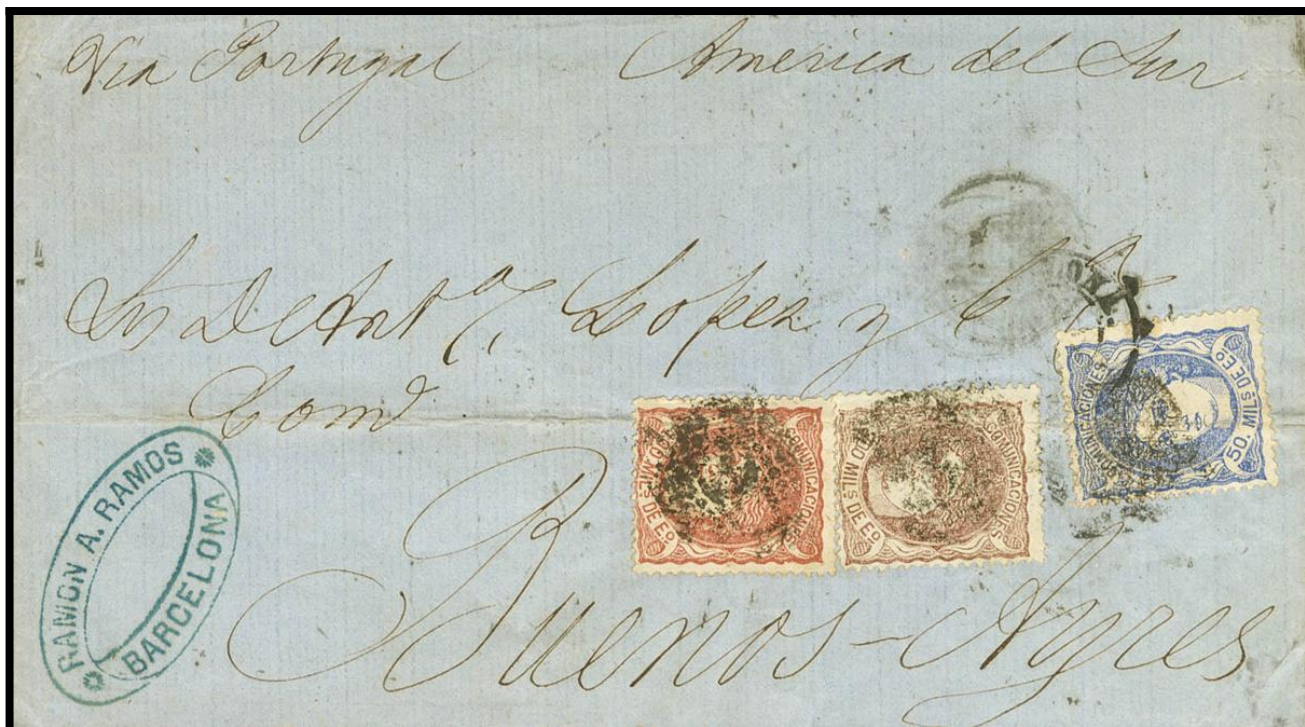 Via Portugal America del Sur
Lopez y Cª
Buenos-Ayres
RAMON A. RAMOS
BARCELONA
COMUNICACIONES
50. MILS DE Eº
COMUNICACIONES
MILS DE Eº
COMUNICACIONES
MILS DE Eº